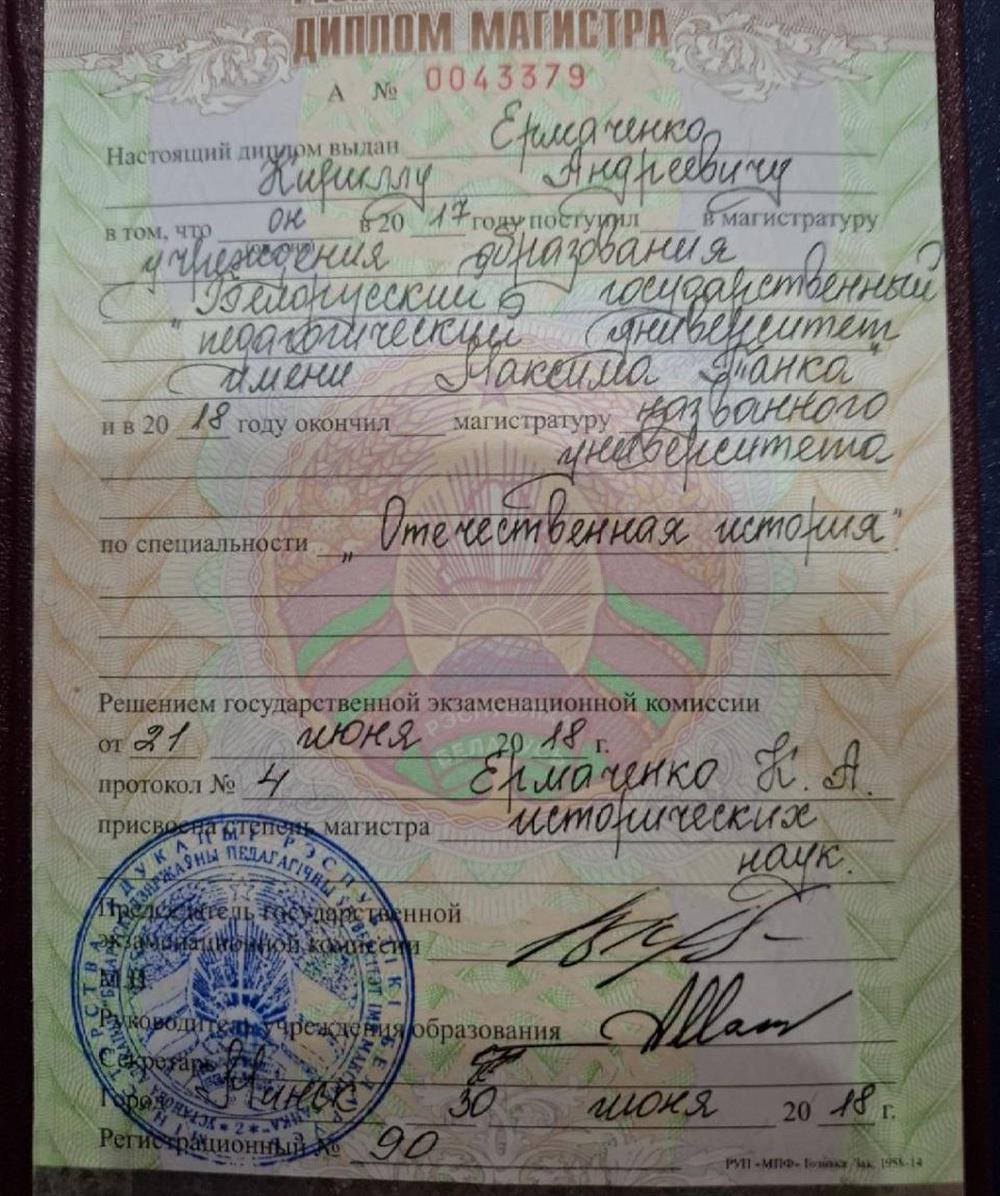 ДИПЛОМ МАГИСТРА
А № 0043379
Настоящий диплом выдан Ермаченко
Кириллу Андреевичу
в том, что он в 2017 году поступил в магистратуру
учреждения образования
"Белорусский государственный
педагогический университет
имени Максима Танка"
и в 2018 году окончил магистратуру названного
университета
по специальности „Отечественная история"
Решением государственной экзаменационной комиссии
от 21 июня 2018 г.
протокол № 4 Ермаченко К. А.
присвоена степень магистра исторических
наук.
Председатель государственной
экзаменационной комиссии
М.П.
Руководитель учреждения образования
Секретарь
Город Минск 30 июня 2018 г.
Регистрационный № 90
РУП «МПФ» Гознака. Зак. 1958-14